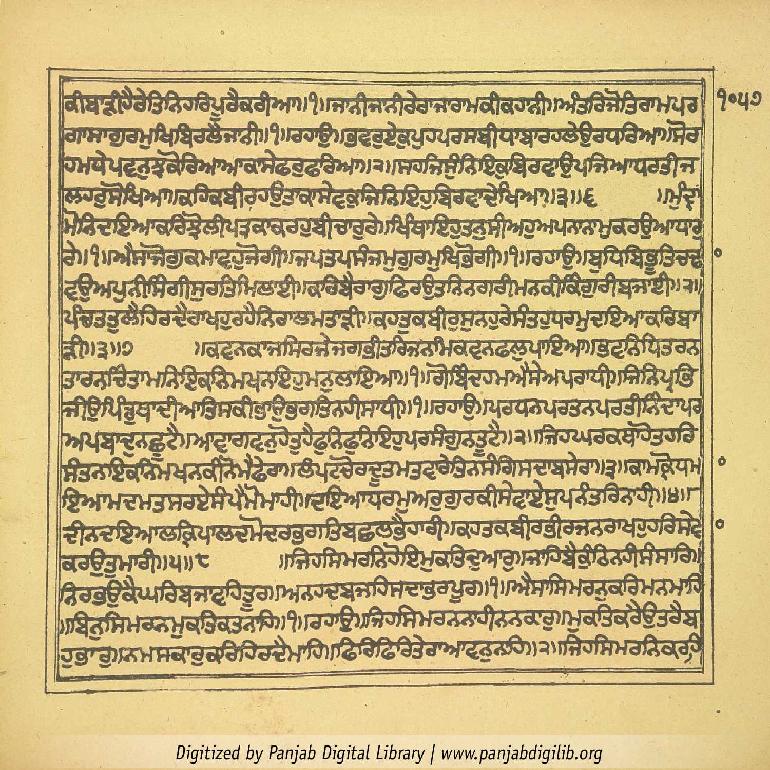 ਕੀਬਾੜੀਹੈਰੇਤਿਨਿਹਰਿਪੂਰੈਕਰੀਆ॥੧॥ਜਾਨੀਜਾਨੀਰੇਰਾਜਾਰਾਮਕੀਕਹਾਨੀ॥ਅੰਤਰਿਜੋਤਿਰਾਮਪਰ
੧੦੫੭
ਗਾਸਾਗੁਰਮੁਖਿਬਿਰਲੈਜਾਨੀ॥੧॥ਰਹਾਉ॥ਭਵਰੁਏਕੁਪੁਹਪਰਸਬੀਧਾਬਾਰਹਲੇਉਰਧਰਿਆ॥ਸੋਰ
ਹਮਧੇਪਵਨੁਝਕੋਰਿਆਆਕਾਸੇਫਰੁਫਰਿਆ॥੨॥ਸਹਜਿਸੁੰਨਿਇਕੁਬਿਰਵਾਉਪਜਿਆਧਰਤੀਜ
ਲਹਰੁਸੋਖਿਆ॥ਕਹਿਕਬੀਰਹਉਤਾਕਾਸੇਵਕੁਜਿਨਿਇਹੁਬਿਰਵਾਦੇਖਿਆ॥੩॥੬ ॥ਮੁੰਦ੍ਰਾ
ਮੋਨਿਦਇਆਕਰਿਝੋਲੀਪਤ੍ਰਕਾਕਰਹੁਬੀਚਾਰੁਰੇ॥ਖਿੰਥਾਇਹੁਤਨੁਸੀਅਹੁਅਪਨਾਨਾਮੁਕਰਉਆਧਾਰੁ
ਰੇ॥੧॥ਐਸਾਜੋਗੁਕਮਾਵਹੁਜੋਗੀ॥ਜਪਤਪਸੰਜਮੁਗੁਰਮੁਖਿਭੋਗੀ॥੧॥ਰਹਾਉ॥ਬੁਧਿਬਿਭੂਤਿਚਢ
ਵਉਅਪੁਨੀਸਿੰਗੀਸੁਰਤਿਮਿਲਾਈ॥ਕਰਿਬੈਰਾਗੁਫਿਰਉਤਨਿਨਗਰੀਮਨਕੀਕਿੰਗੁਰੀਬਜਾਈ॥੨॥
ਪੰਚਤਤੁਲੈਹਿਰਦੈਰਾਖਹੁਰਹੈਨਿਰਾਲਮਤਾੜੀ॥ਕਹਤੁਕਬੀਰੁਸੁਨਹੁਰੇਸੰਤਹੁਧਰਮੁਦਇਆਕਰਿਬਾ
ੜੀ॥੩॥੭ ॥ਕਵਨਕਾਜਸਿਰਜੇਜਗਭੀਤਰਿਜਨਮਿਕਵਨਫਲੁਪਾਇਆ॥ਭਵਨਿਧਿਤਰਨ
ਤਾਰਨਚਿੰਤਾਮਨਿਇਕਨਿਮਖਨਇਹੁਮਨੁਲਾਇਆ॥੧॥ਗੋਬਿੰਦਹਮਐਸੇਅਪਰਾਧੀ॥ਜਿਨਿਪ੍ਰਭਿ
ਜੀਉਪਿੰਡੁਥਾਦੀਆਤਿਸਕੀਭਾਉਭਗਤਿਨਹੀਸਾਧੀ॥੧॥ਰਹਾਉ॥ਪਰਧਨਪਰਤਨਪਰਤੀਨਿੰਦਾਪਰ
ਅਪਬਾਦੁਨਛੂਟੈ॥ਆਵਾਗਵਨੁਹੋਤੁਹੈਫੁਨਿਫੁਨਿਇਹੁਪਰਸੰਗੁਨਤੂਟੈ॥੨॥ਜਿਹਘਰਕਥਾਹੋਤਹਰਿ
ਸੰਤਨਇਕਨਿਮਖਨਕੀਨੋਮੈਫੇਰਾ॥ਲੰਪਟਚੋਰਦੂਤਮਤਵਰੇਤਿਨਸੰਗਿਸਦਾਬਸੇਰਾ॥੩॥ਕਾਮਕ੍ਰੋਧਮ
ਇਆਮਦਮਤਸਰਏਸੰਪੈਮੋਮਾਹੀ॥ਦਇਆਧਰਮੁਅਰੁਗੁਰਕੀਸੇਵਾਏਸੁਪਨੰਤਰਿਨਾਹੀ॥੪॥
ਦੀਨਦਇਆਲਕ੍ਰਿਪਾਲਦਮੋਦਰਭਗਤਿਬਛਲਭੈਹਾਰੀ॥ਕਹਤਕਬੀਰਭੀਰਜਨਰਾਖਹੁਹਰਿਸੇਵ
ਕਰਉਤੁਮਾਰੀ॥੫॥੮ ॥ਜਿਹਸਿਮਰਨਿਹੋਇਮੁਕਤਿਦੁਆਰੁ॥ਜਾਹਿਬੈਕੁੰਠਿਨਹੀਸੰਸਾਰਿ॥
ਨਿਰਭਉਕੈਘਰਿਬਜਾਵਹਿਤੂਰ॥ਅਨਹਦਬਜਹਿਸਦਾਭਰਪੂਰ॥੧॥ਐਸਾਸਿਮਰਨੁਕਰਿਮਨਮਾਹਿ
॥ਬਿਨੁਸਿਮਰਨਮੁਕਤਿਕਤਨਾਹਿ॥੧॥ਰਹਾਉ॥ਜਿਹਸਿਮਰਨਨਾਹੀਨਨਕਾਰੁ॥ਮੁਕਤਿਕਰੈਉਤਰੈਬ
ਹੁਭਾਰੁ॥ਨਮਸਕਾਰੁਕਰਿਹਿਰਦੈਮਾਹਿ॥ਫਿਰਿਫਿਰਿਤੇਰਾਆਵਨੁਨਾਹਿ॥੨॥ਜਿਹਸਿਮਰਨਿਕਰਹਿ
Digitized by Panjab Digital Library | www.panjabdigilib.org